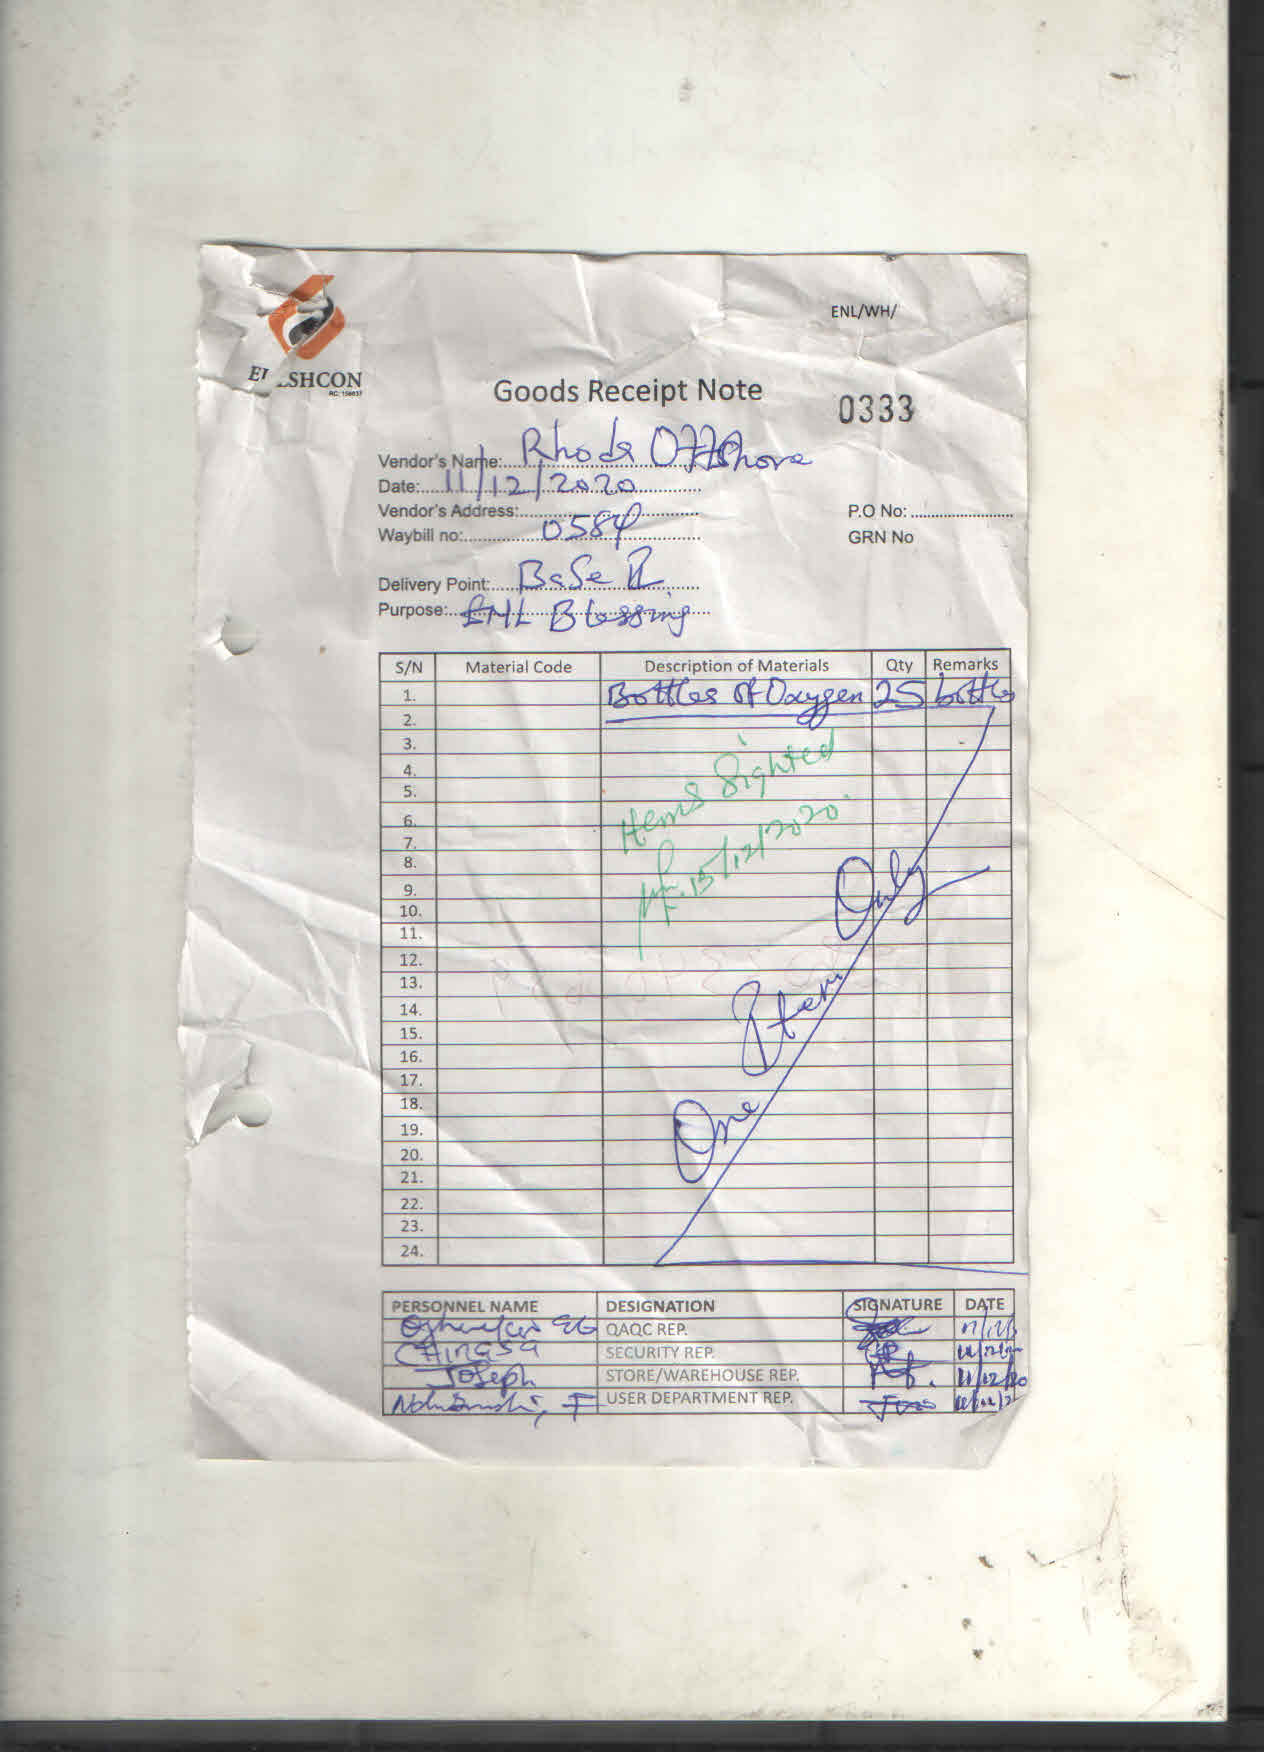 ENL/WH/
SHCON
Goods Receipt Note
0333
Vendor's Name: Rhode Offshore
Date: 11/12/2020
Vendor's Address:
P.O No:
Waybill no: 0584
GRN No
Delivery Point: Base II
Purpose: ENL Blessing
S/N Material Code Description of Materials Qty Remarks
1. Bottles of Oxygen 25 bottles
2.
3.
4.
5.
6.
7.
8.
9.
10.
11.
12.
13.
14.
15.
16.
17.
18.
19.
20.
21.
22.
23.
24.
Items Sighted
15/12/2020
One Item Only
PERSONNEL NAME DESIGNATION SIGNATURE DATE
QAQC REP.
CHINASA SECURITY REP.
Joseph STORE/WAREHOUSE REP. 11/12/20
USER DEPARTMENT REP.